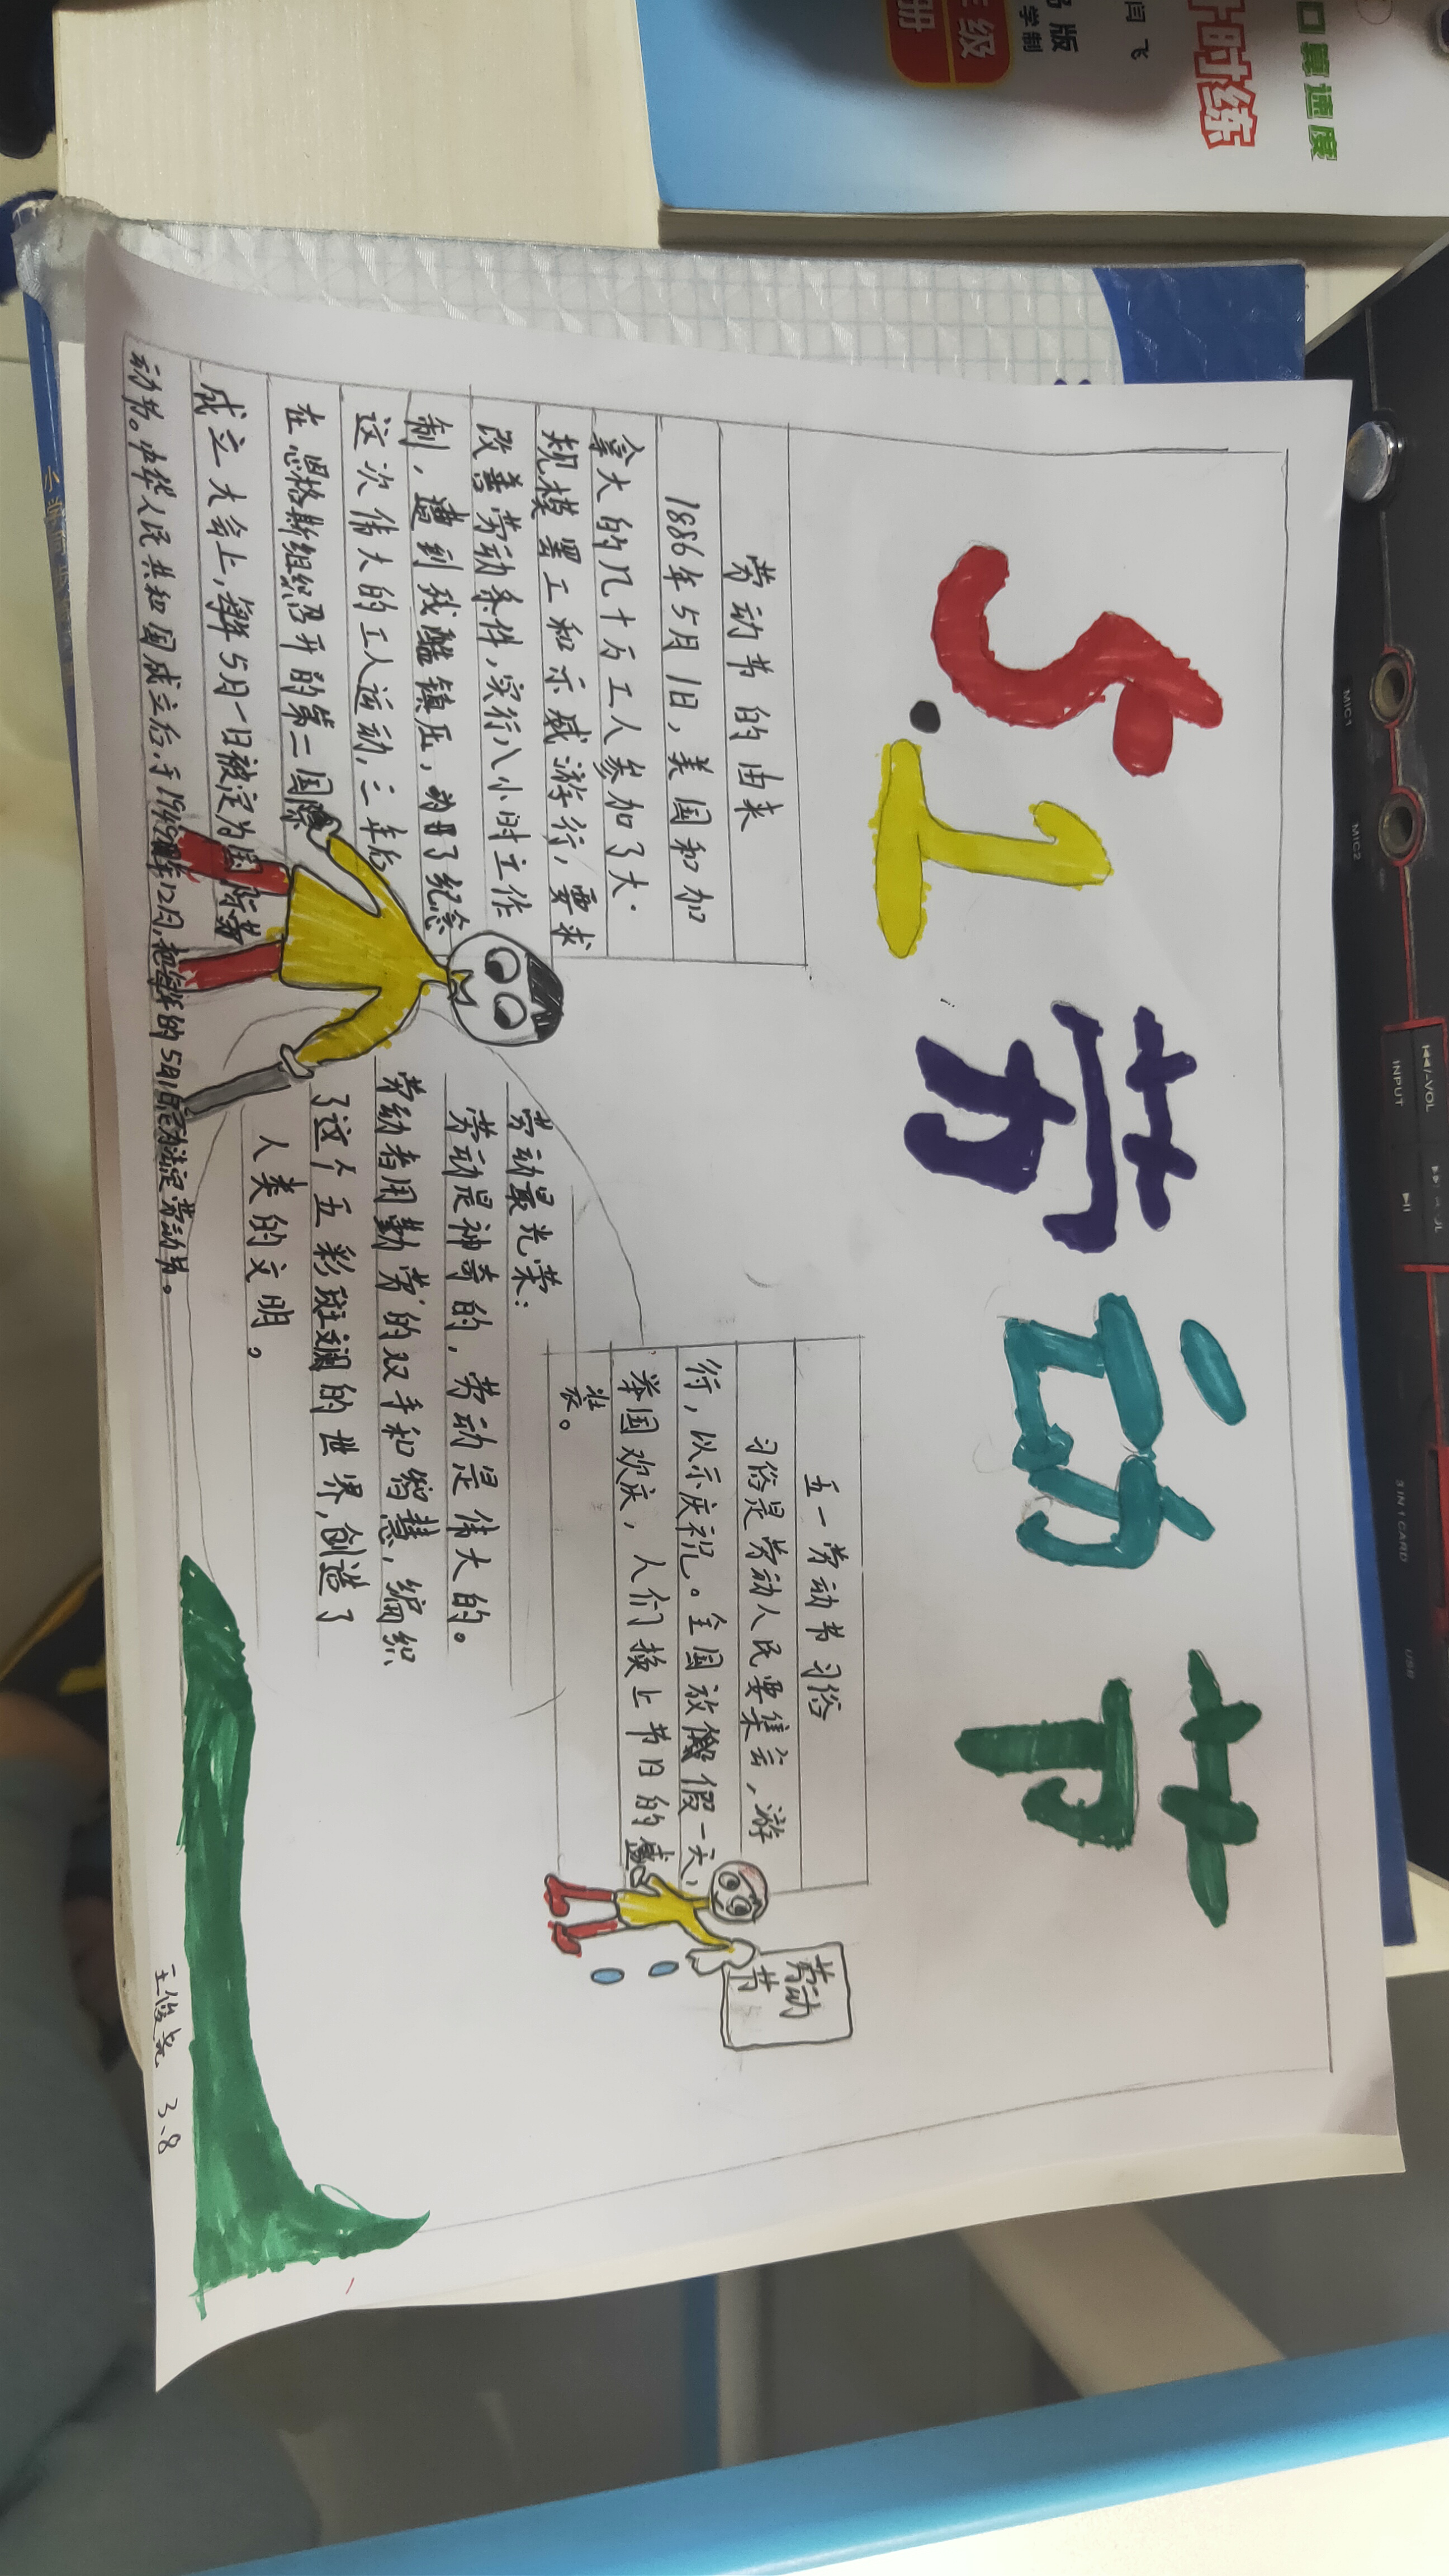 5.1劳动节
劳动节的由来
1886年5月1日，美国和加
拿大的几十万工人参加了大
规模罢工和示威游行，要求
改善劳动条件，实行八小时工作
制，遭到残酷镇压，为了纪念
这次伟大的工人运动，三年后
在恩格斯组织召开的第二国际
成立大会上，每年5月一日被定为国际劳
动节。中华人民共和国成立后，于1949年12月，把每年的5月1日定为法定劳动节。
五一劳动节习俗
习俗是劳动人民要集会，游
行，以示庆祝。全国放假一天，
举国欢庆，人们换上节日的盛
装。
劳动节
劳动最光荣：
劳动是神奇的，劳动是伟大的。
劳动者用勤劳的双手和智慧，编织
了这个五彩斑斓的世界，创造了
人类的文明。
3、8
口算速度
时练
闫飞
版
学制
年级
册
MIC1
MIC2
I◀◀/-VOL
INPUT
3 IN 1 CARD
USB